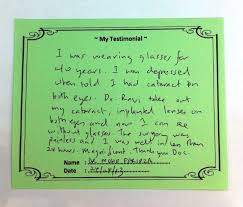 ~ My Testimonial ~
I was wearing glasses for
40 years. I was depressed
when told I had cataract on
both eyes. Dr. Ravi take out
my cataract, implanted lenses in
both eyes and now I can see
without glasses. The surgery was
painless and I was well in less than
24 hours. Magnificent. Thank you Doc.
Name : Dr.
Date :